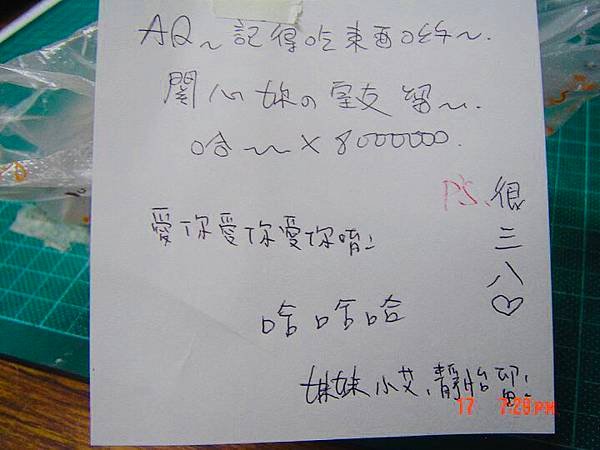 AQ~記得吃東西喲~.
關心妳の室友 留~.
哈~~×8000000.
P.S. 很三八♡
愛你愛你愛你唷!!
哈哈哈
妹妹小艾、靜怡 留!!
17 7:29PM